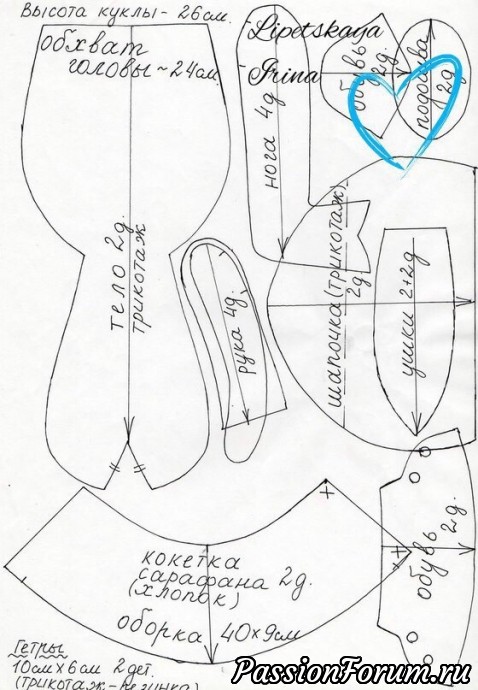 Высота куклы - 26 см.
обхват
головы ~ 24 см.
Lipetskaya
Irina
обувь
2д.
подошва
2д
нога 4д
тело 2д.
трикотаж
рука 4д.
шапочка (трикотаж)
2д
ушки 2+2д
обувь
2д.
кокетка
сарафана 2д.
(хлопок)
оборка 40×9см
Гетры
10см×6см 2дет.
(трикотаж-резинка)
PassionForum.ru